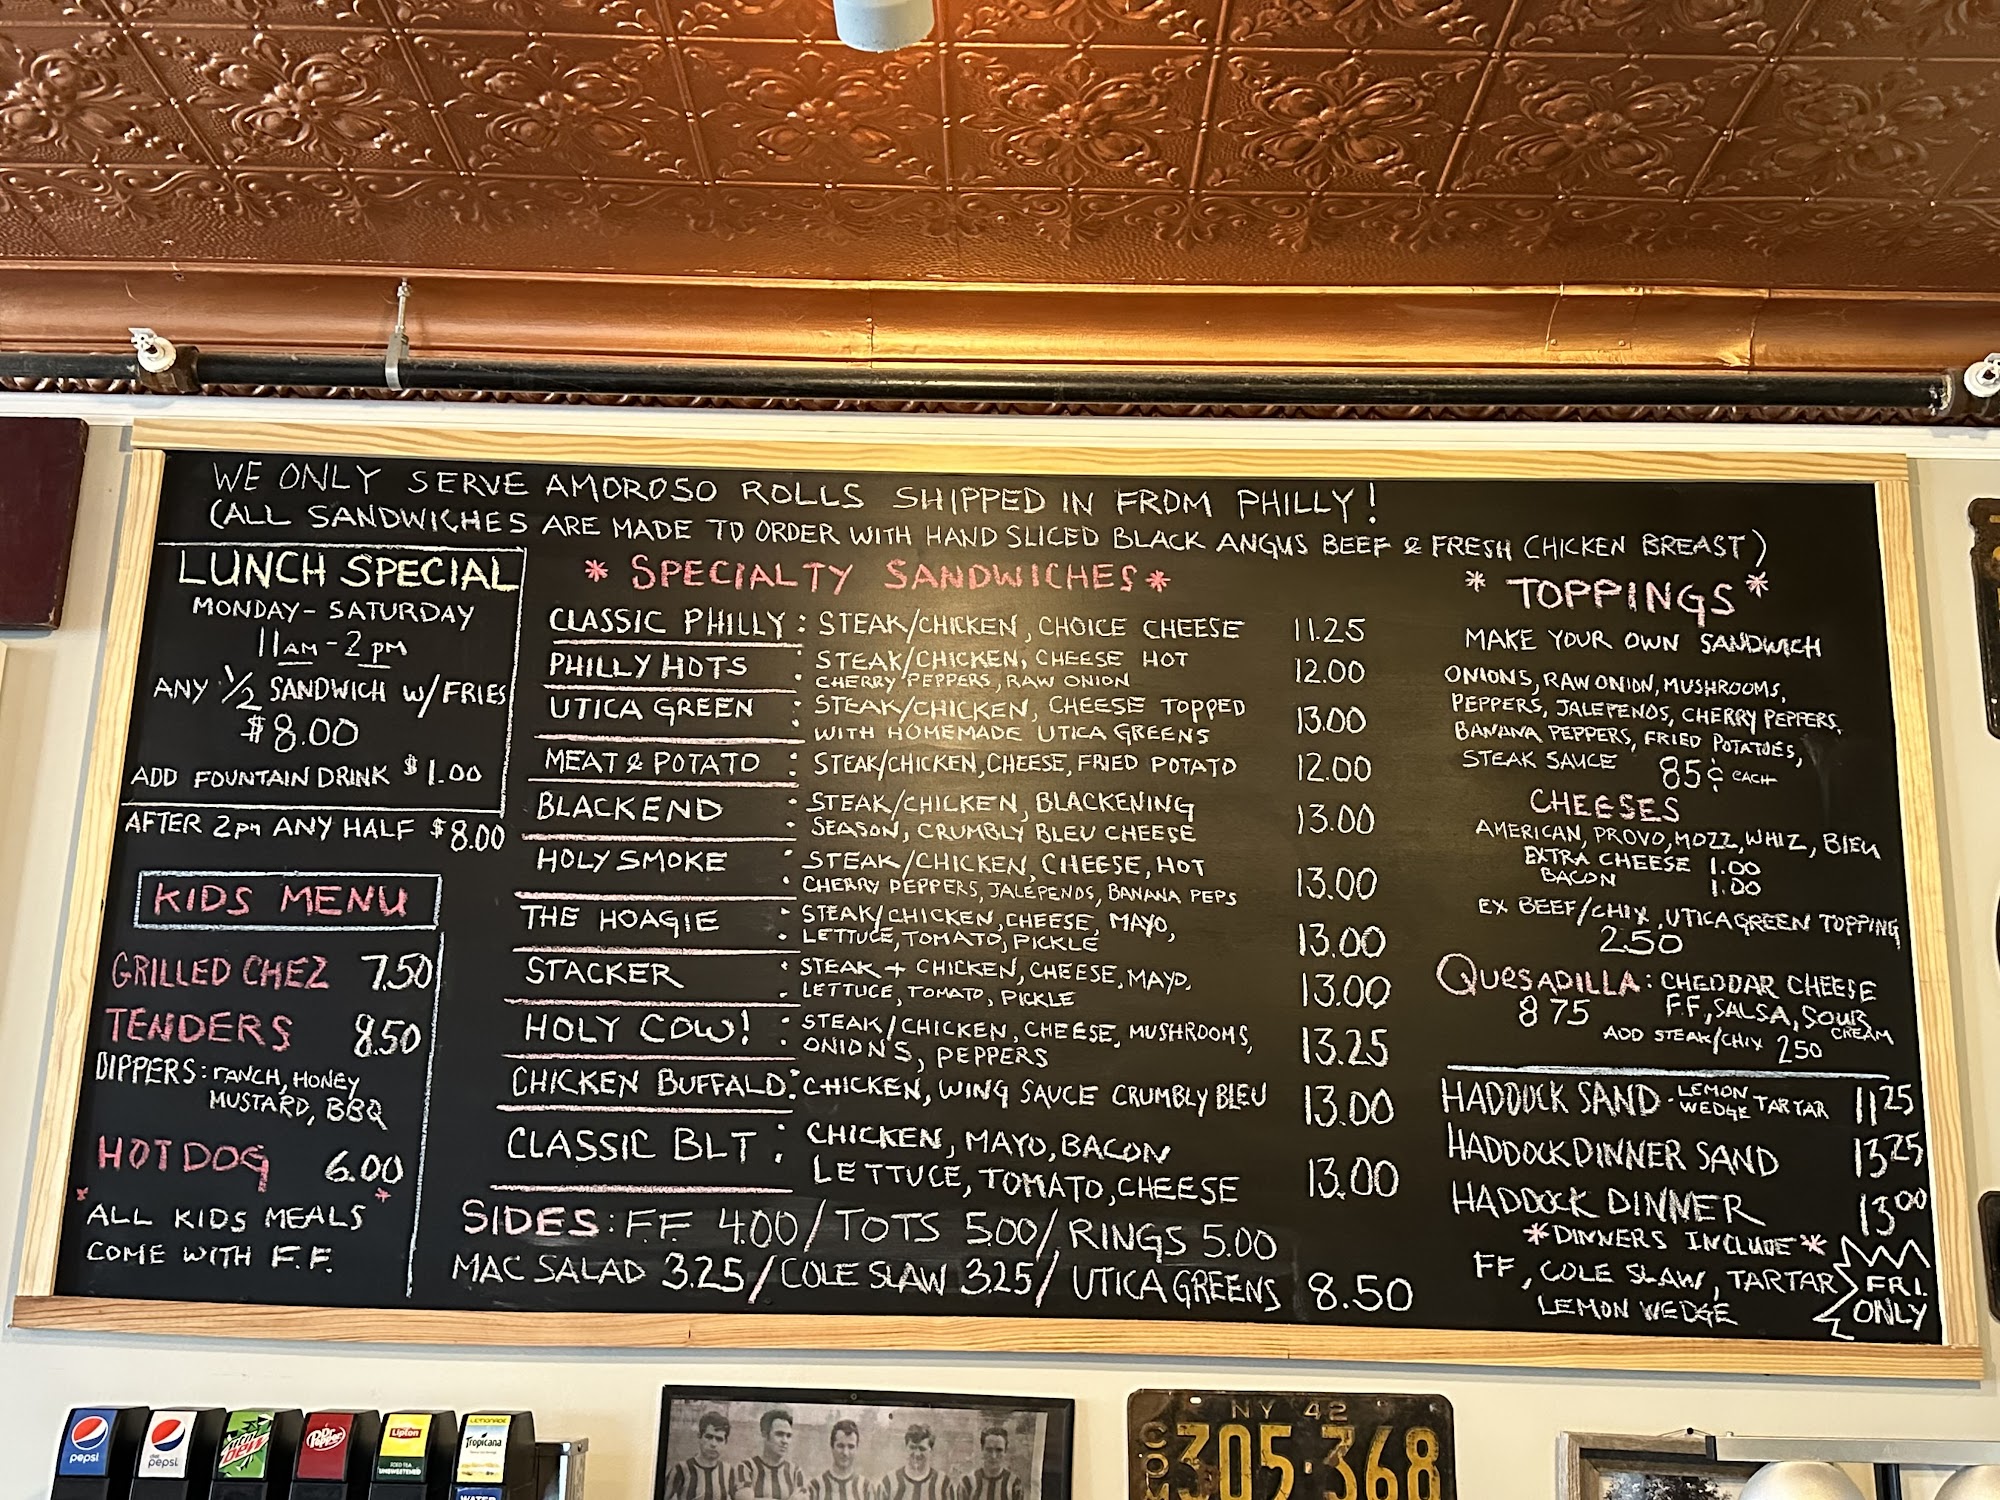 WE ONLY SERVE AMOROSO ROLLS SHIPPED IN FROM PHILLY!
(ALL SANDWICHES ARE MADE TO ORDER WITH HAND SLICED BLACK ANGUS BEEF & FRESH CHICKEN BREAST)
LUNCH SPECIAL
MONDAY - SATURDAY
11AM - 2PM
ANY 1/2 SANDWICH W/FRIES
$8.00
ADD FOUNTAIN DRINK $1.00
AFTER 2PM ANY HALF $8.00
KIDS MENU
GRILLED CHEZ 7.50
TENDERS 8.50
DIPPERS: RANCH, HONEY
MUSTARD, BBQ
HOT DOG 6.00
* ALL KIDS MEALS *
COME WITH F.F.
* SPECIALTY SANDWICHES *
CLASSIC PHILLY: STEAK/CHICKEN, CHOICE CHEESE 11.25
PHILLY HOTS : STEAK/CHICKEN, CHEESE HOT
CHERRY PEPPERS, RAW ONION 12.00
UTICA GREEN : STEAK/CHICKEN, CHEESE TOPPED
WITH HOMEMADE UTICA GREENS 13.00
MEAT & POTATO : STEAK/CHICKEN, CHEESE, FRIED POTATO 12.00
BLACKEND : STEAK/CHICKEN, BLACKENING
SEASON, CRUMBLY BLEU CHEESE 13.00
HOLY SMOKE : STEAK/CHICKEN, CHEESE, HOT
CHERRY PEPPERS, JALEPENOS, BANANA PEPS 13.00
THE HOAGIE : STEAK/CHICKEN, CHEESE, MAYO,
LETTUCE, TOMATO, PICKLE 13.00
STACKER : STEAK + CHICKEN, CHEESE, MAYO,
LETTUCE, TOMATO, PICKLE 13.00
HOLY COW! : STEAK/CHICKEN, CHEESE, MUSHROOMS,
ONIONS, PEPPERS 13.25
CHICKEN BUFFALO: CHICKEN, WING SAUCE CRUMBLY BLEU 13.00
CLASSIC BLT : CHICKEN, MAYO, BACON
LETTUCE, TOMATO, CHEESE 13.00
SIDES: F.F. 4.00/TOTS 5.00/RINGS 5.00
MAC SALAD 3.25/COLE SLAW 3.25/UTICA GREENS 8.50
* TOPPINGS *
MAKE YOUR OWN SANDWICH
ONIONS, RAW ONION, MUSHROOMS,
PEPPERS, JALEPENOS, CHERRY PEPPERS,
BANANA PEPPERS, FRIED POTATOES,
STEAK SAUCE 85¢ EACH
CHEESES
AMERICAN, PROVO, MOZZ, WHIZ, BLEU
EXTRA CHEESE 1.00
BACON 1.00
EX BEEF/CHIX, UTICA GREEN TOPPING
2.50
QUESADILLA: CHEDDAR CHEESE
8 75 F.F., SALSA, SOUR
CREAM
ADD STEAK/CHIX 2 50
HADDOCK SAND - LEMON WEDGE TARTAR 11 25
HADDOCK DINNER SAND 13 25
HADDOCK DINNER 13 00
* DINNERS INCLUDE *
FF, COLE SLAW, TARTAR
LEMON WEDGE
FRI.
ONLY
pepsi
pepsi
mtn dew
Dr Pepper
Lipton
ICED TEA
UNSWEETENED
LEMONADE
Tropicana
WATER
NY 42
305·368